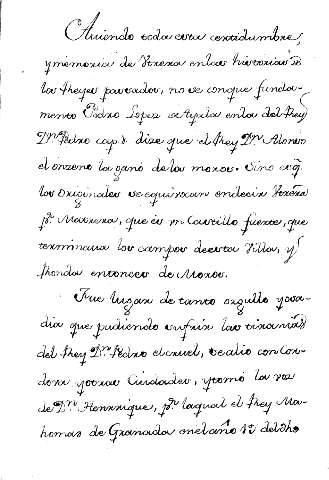 Auiendo toda esta certidumbre,
y memoria de Vtrera en las historias de
los Reyes pasados, no se con que funda-
mento Pedro Lopez de Ayala en la del Rey
Dn. Pedro cap. dize que el Rey Dn. Alonso
el onzeno la ganó de los moros. Sino es q.
los originales se equivocan en decir Vtrera
pr. Matrera, que es un Castillo fuerte, que
terminaua los campos de esta Villa, y
Ronda entonces de Moros.
Fue lugar de tanto orgullo y osa-
dia que pudiendo sufrir las tiranias
del Rey Dn. Pedro el cruel, se alio con Cor-
doua y otras Ciudades, y tomó la voz
de Dn. Henrrique, pr. la qual el Rey Ma-
homas de Granada en el año 19 del dho